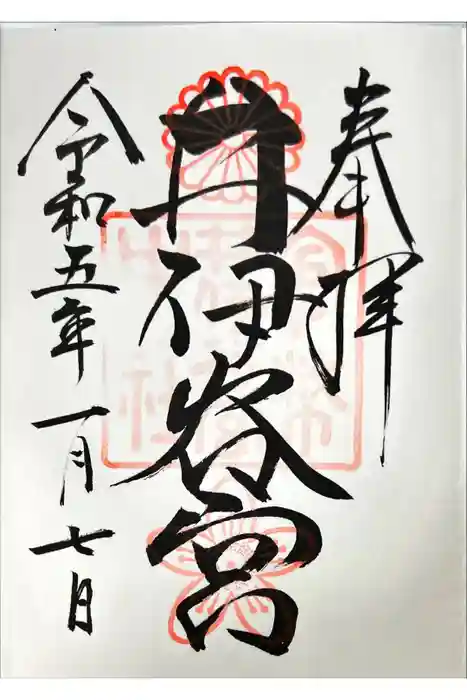 奉拝
井伊谷宮
令和五年一月七日